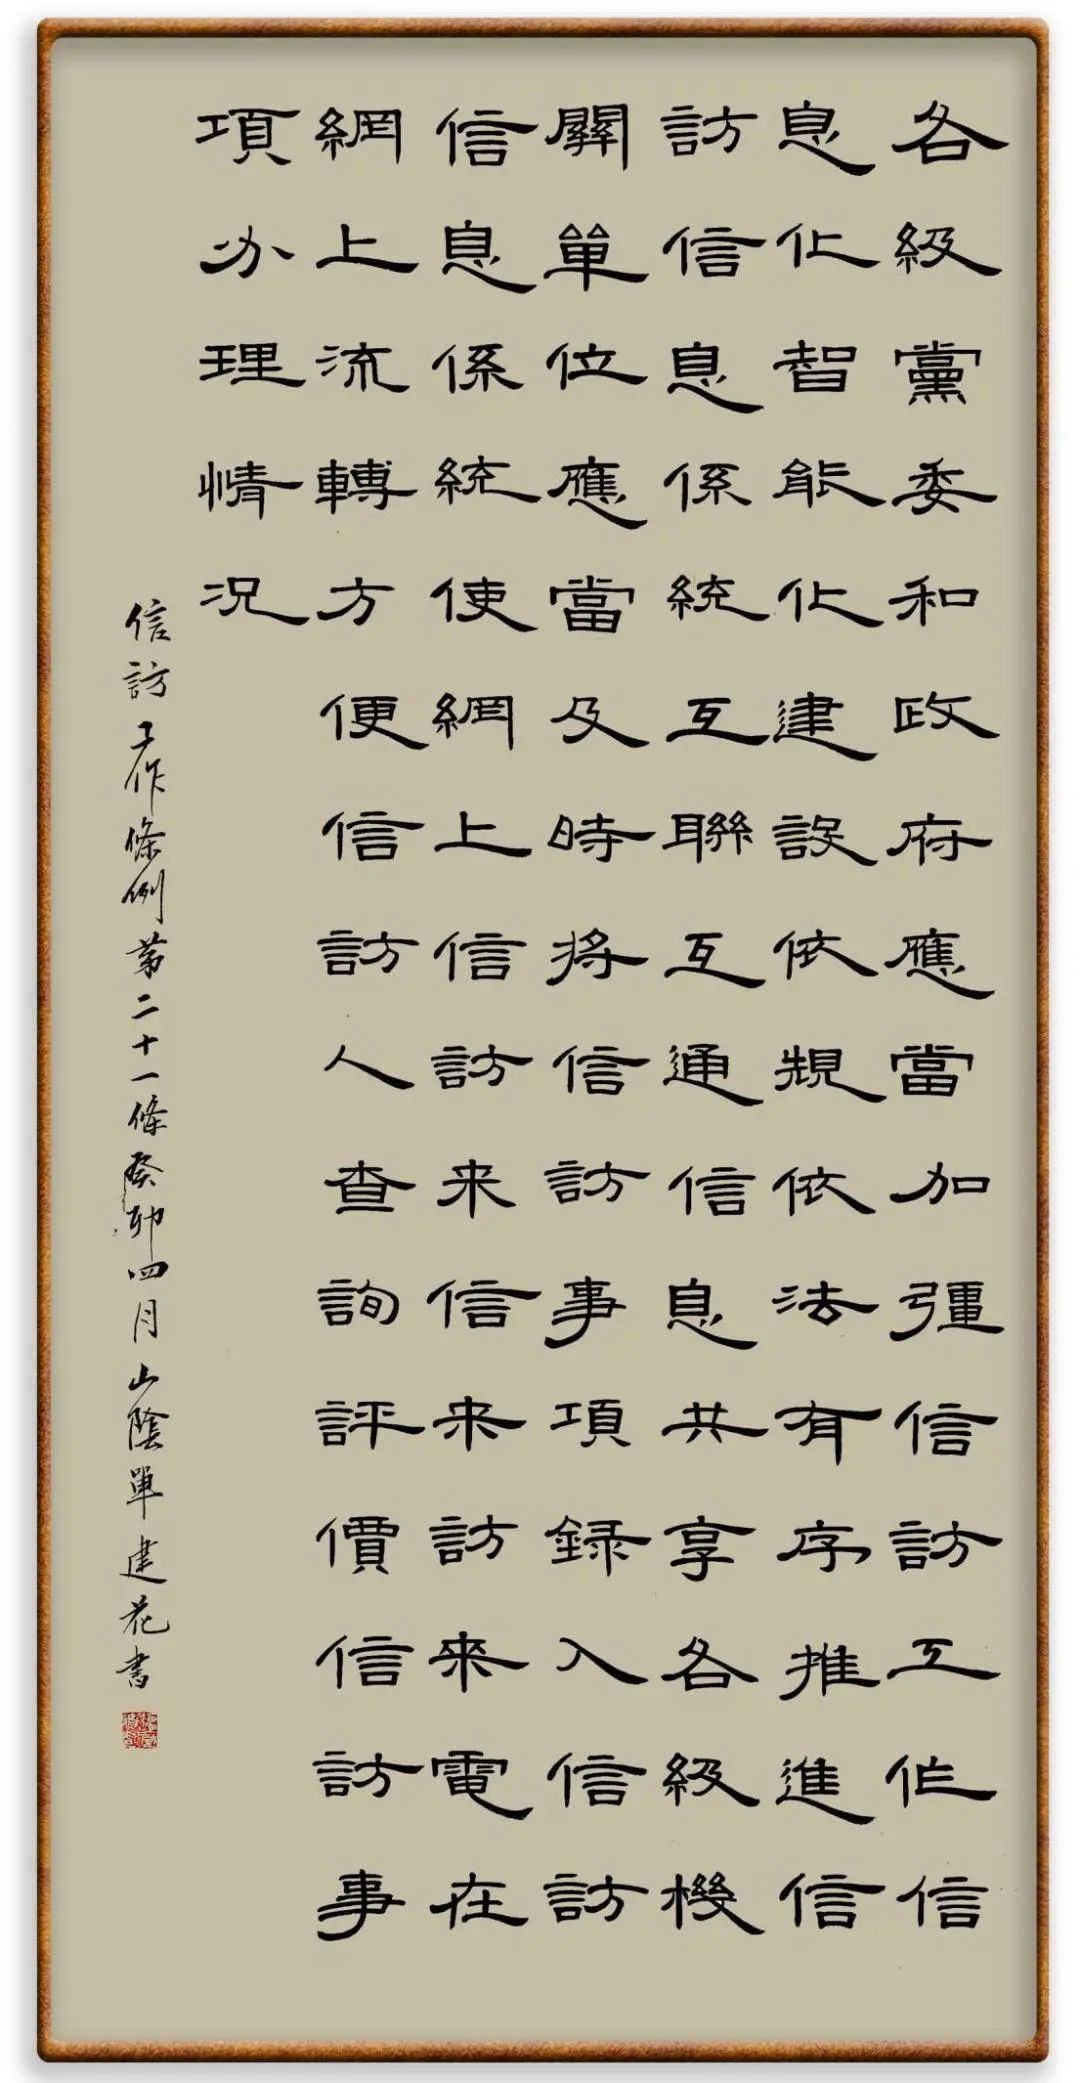 各級黨委和政府應當加彊信訪工作信
息化智能化建設依規依法有序推進信
訪信息係統互聯互通信息共享各級機
關單位應當及時將信訪事項録入信訪
信息係統使網上信訪来信来訪來電在
網上流轉方便信訪人查詢評價信訪事
項办理情况
信訪工作條例第二十一條癸卯四月山陰單建花書